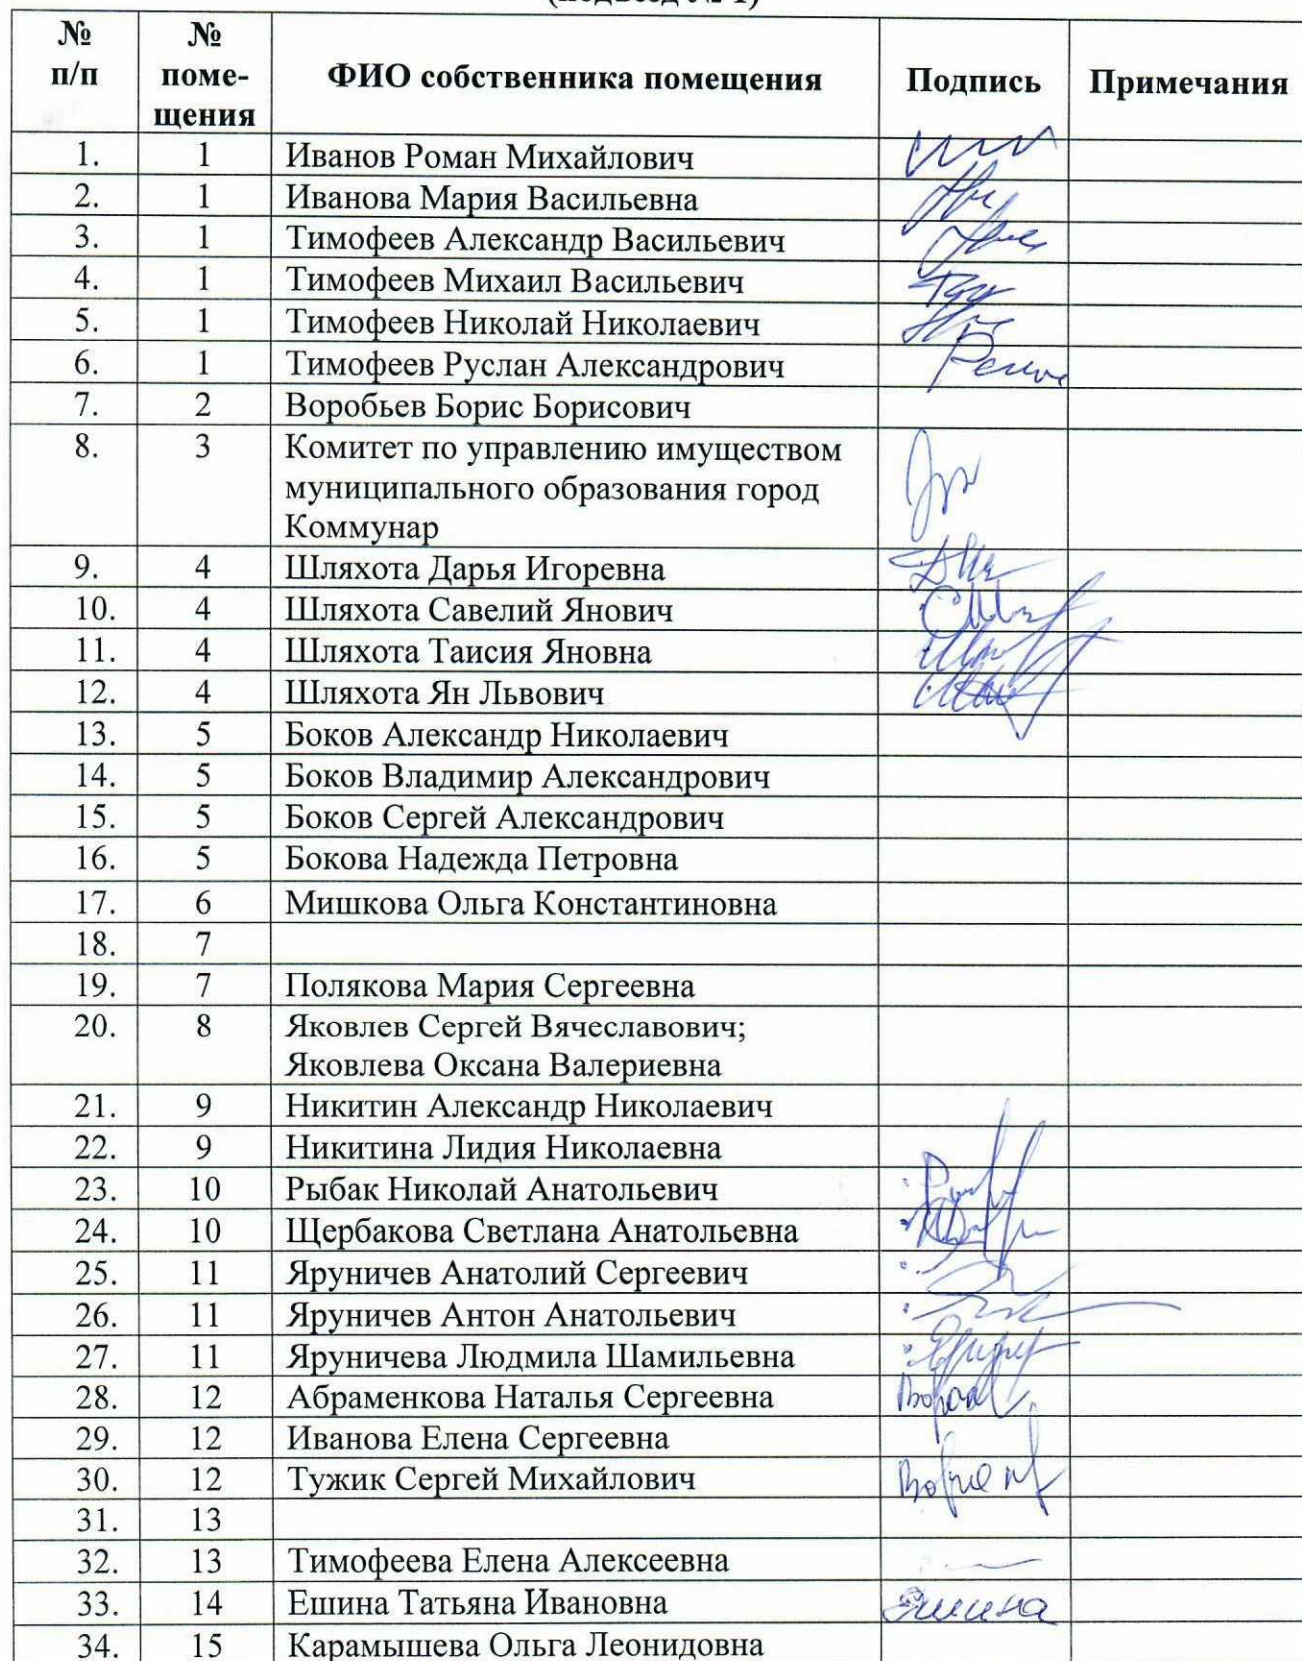 (подъезд № 1)
№ п/п № поме-щения ФИО собственника помещения Подпись Примечания
1. 1 Иванов Роман Михайлович
2. 1 Иванова Мария Васильевна
3. 1 Тимофеев Александр Васильевич
4. 1 Тимофеев Михаил Васильевич
5. 1 Тимофеев Николай Николаевич
6. 1 Тимофеев Руслан Александрович
7. 2 Воробьев Борис Борисович
8. 3 Комитет по управлению имуществом
муниципального образования город
Коммунар
9. 4 Шляхота Дарья Игоревна
10. 4 Шляхота Савелий Янович
11. 4 Шляхота Таисия Яновна
12. 4 Шляхота Ян Львович
13. 5 Боков Александр Николаевич
14. 5 Боков Владимир Александрович
15. 5 Боков Сергей Александрович
16. 5 Бокова Надежда Петровна
17. 6 Мишкова Ольга Константиновна
18. 7
19. 7 Полякова Мария Сергеевна
20. 8 Яковлев Сергей Вячеславович;
Яковлева Оксана Валериевна
21. 9 Никитин Александр Николаевич
22. 9 Никитина Лидия Николаевна
23. 10 Рыбак Николай Анатольевич
24. 10 Щербакова Светлана Анатольевна
25. 11 Яруничев Анатолий Сергеевич
26. 11 Яруничев Антон Анатольевич
27. 11 Яруничева Людмила Шамильевна
28. 12 Абраменкова Наталья Сергеевна
29. 12 Иванова Елена Сергеевна
30. 12 Тужик Сергей Михайлович
31. 13
32. 13 Тимофеева Елена Алексеевна
33. 14 Ешина Татьяна Ивановна
34. 15 Карамышева Ольга Леонидовна